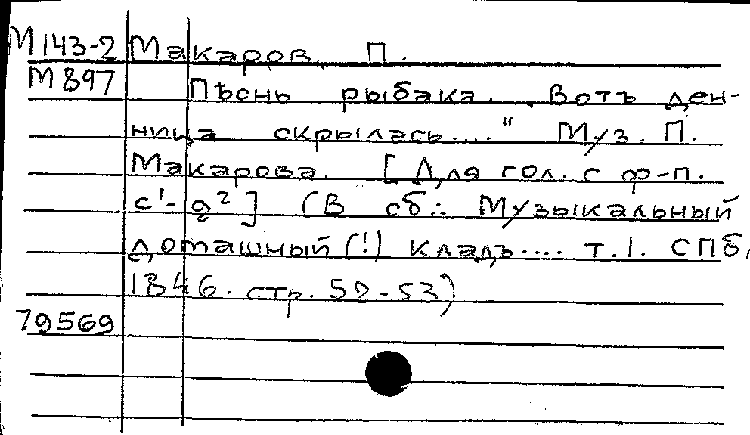 М 143-2 Макаров, П.
М 897 Пѣснь рыбака. „Вотъ ден-
ница скрылась...." Муз. П.
Макарова. [Для гол. с ф-п.
c¹-g²] (В сб.: Музыкальный
доташный (!) кладъ.... т.1. СПб,
1846. стр. 52-53)
79569